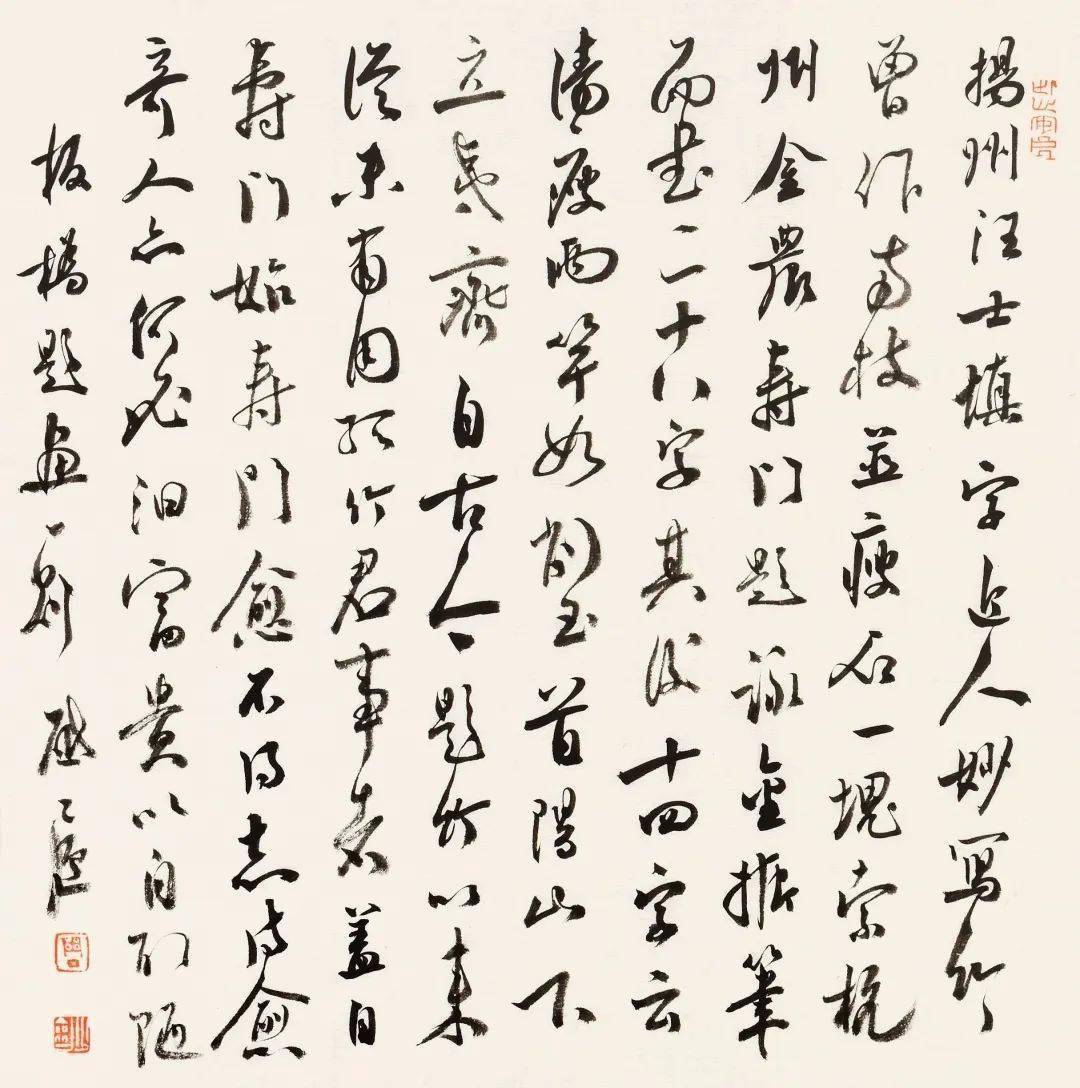 揚州汪士慎字近人妙寫竹
曾作兩枝並瘦石一塊索杭
州金農壽門題詠金振筆
而書二十八字其後十四字云
清瘦兩竿如削玉首陽山下
立夷齊自古今題竹以来
從未有用孤竹君事者蓋自
壽門始壽門愈不得志詩愈
奇人亦何必汩富貴以自取陋
板橋題畫一則